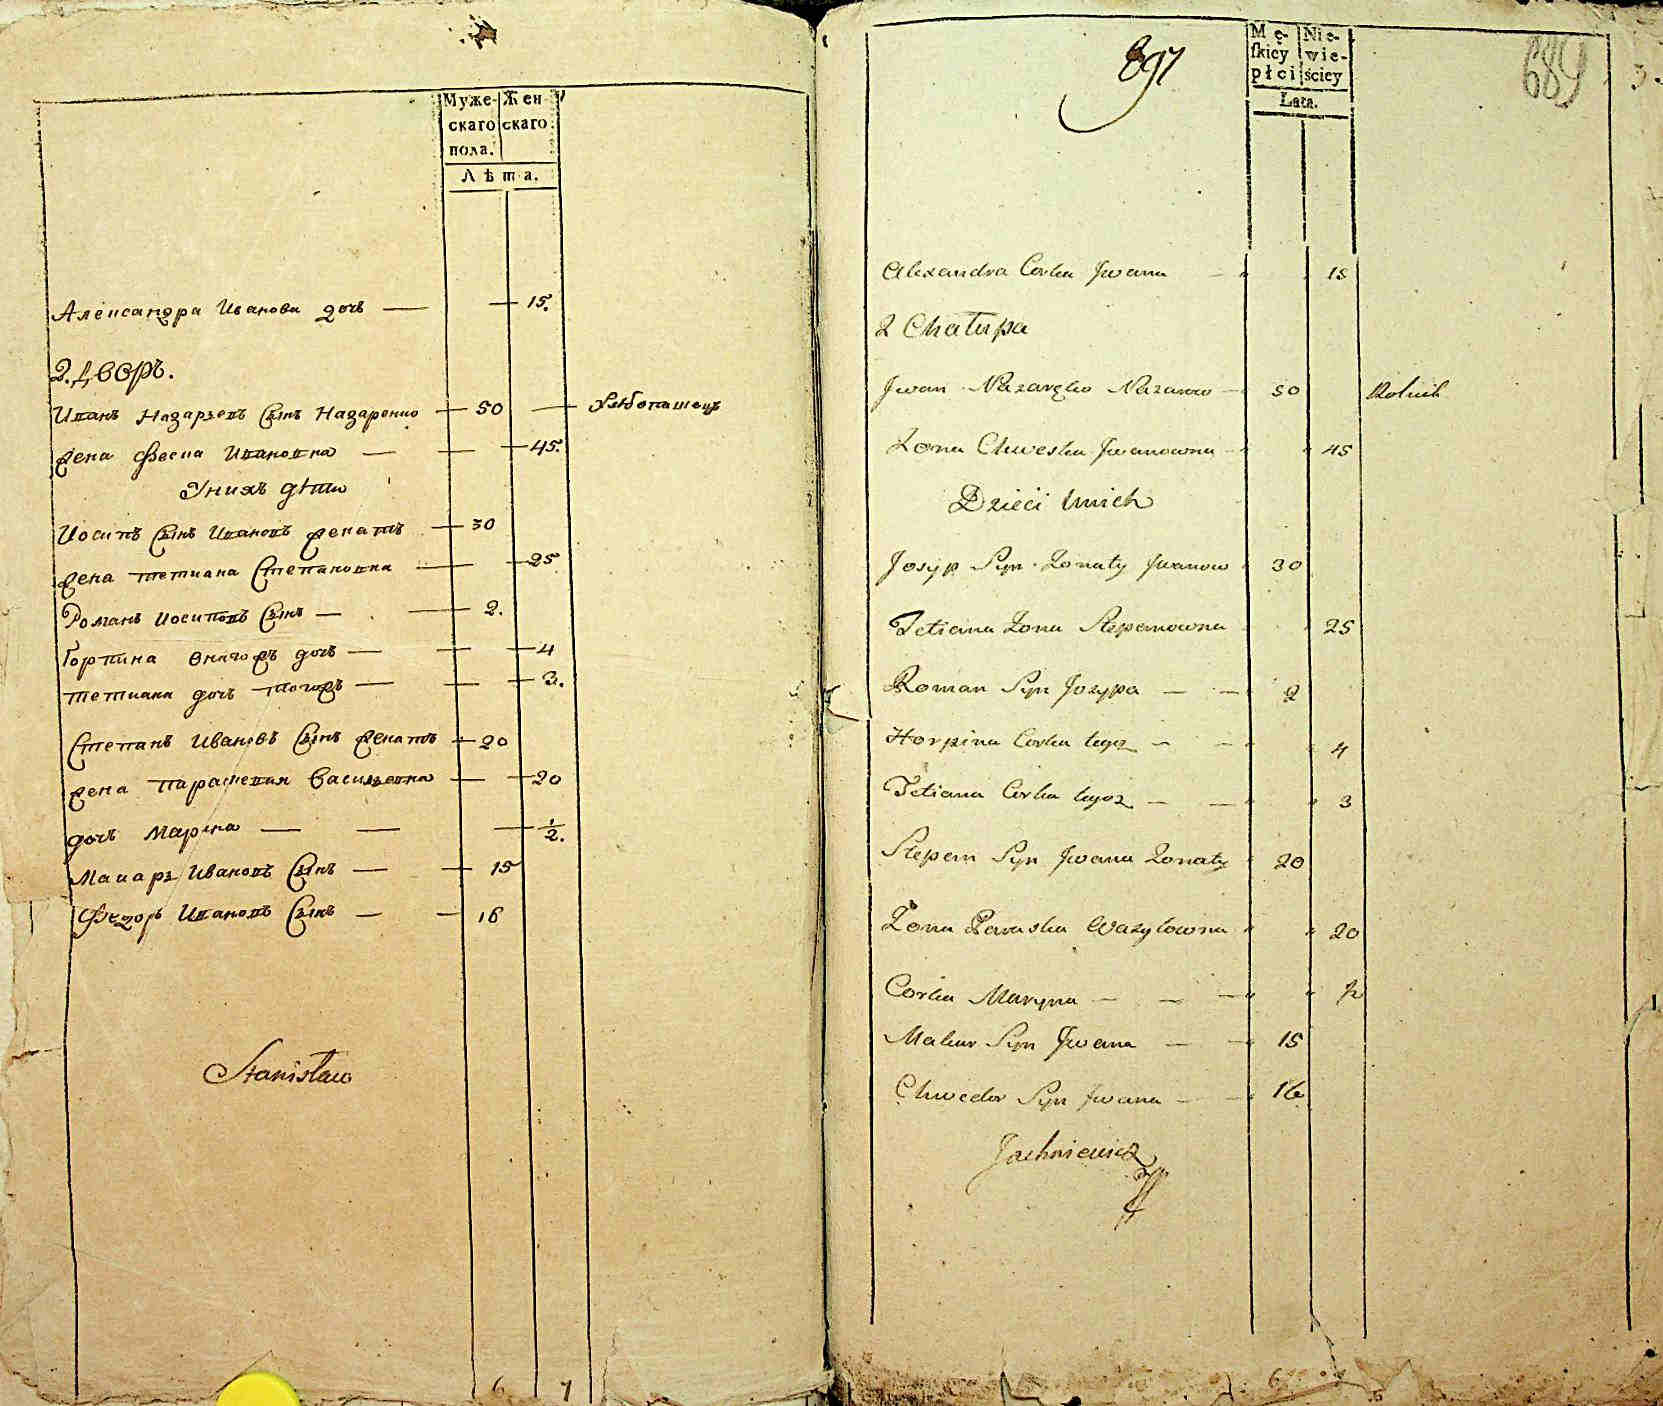 Муже- Жен-
скаго скаго
пола.
Лѣта.
Александра Иванова дочь — 15.
2. Дворъ.
Иванъ Назарьевъ Сынъ Назаренко — 50 — Хлѣбопашецъ
жена Феска Ивановна — 45.
Унихъ дѣти
Иосипъ Сынъ Ивановъ женатъ — 30
жена Тетиана Степановна — 25
Романъ Иосиповъ Сынъ — 2.
Горпина онагожъ дочь — 4
Тетиана дочь тогожъ — 3.
Степанъ Ивановъ Сынъ женатъ — 20
жена Параскевия Васильевна — 20
дочь Марина — 1/2.
Макаръ Ивановъ Сынъ — 15
Федоръ Ивановъ Сынъ — 16
Stanisław
6 7
897
689
3.
Mę- Nie-
skiey wie-
płci ściey
Lata.
Alexandra Corka Jwana — 15
2 Chałupa
Jwan Nazaręko Nazarow — 50 Rolnik
Zona Chweska Jwanowna — 45
Dzieci Unich
Josyp Syn Zonaty Jwanow 30
Tetiana Zona Stepanowna 25
Roman Syn Jozypa — — 2
Horpina Corka tegoz — — 4
Tetiana Corka tegoz — — 3
Stepan Syn Jwana Zonaty 20
Zona Paraska Wazylowna 20
Corka Maryna — — — 1/2
Makar Syn Jwana — — 15
Chwedor Syn Jwana — — 16
Jachniewicz
6